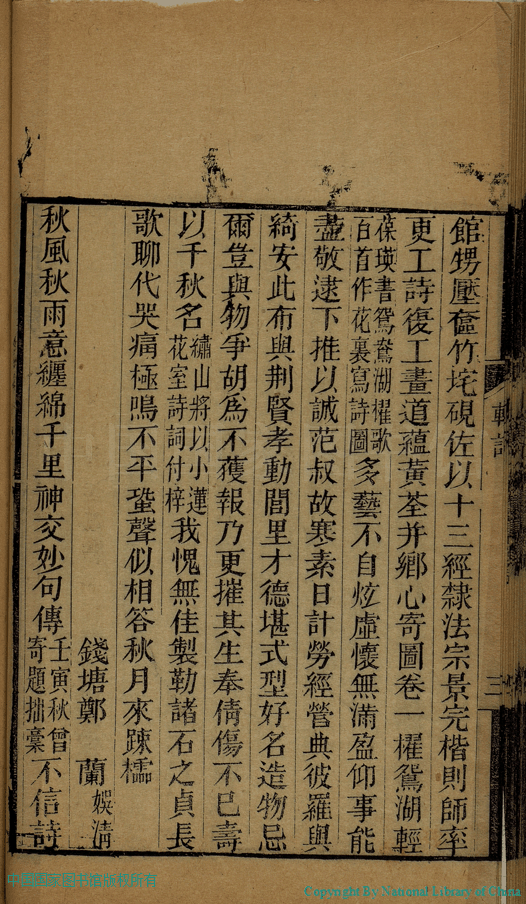 館甥壓奩竹垞硯佐以十三經隸法宗景完楷則師率
更工詩復工畫道蘊黃荃并鄉心寄圖卷一櫂鴛湖輕
葆瑛書鴛鴦湖櫂歌
百首作花裏寫詩圖
多藝不自炫虛懷無滿盈仰事能
盡敬逮下推以誠范叔故寒素日計勞經營典彼羅與
綺安此布與荆賢孝動閭里才德堪式型好名造物忌
爾豈與物爭胡爲不獲報乃更摧其生奉倩傷不已壽
以千秋名
繡山將以小蓮
花室詩詞付梓
我愧無佳製勒諸石之貞長
歌聊代哭痛極鳴不平蛩聲似相答秋月來疎櫺
錢塘鄭 蘭
娛清
秋風秋雨意纏綿千里神交妙句傳
壬寅秋曾
寄題拙稾
不信詩
輓詩
二
中国国家图书馆版权所有
Copyright By National Library of China